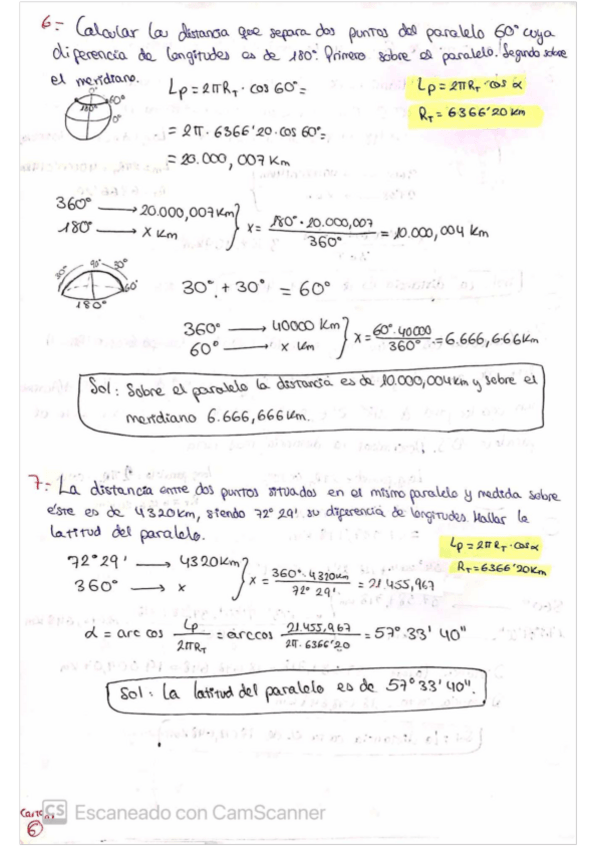 6.- Calcular la distancia que separa dos puntos del paralelo 60° cuya
diferencia de longitudes es de 180°. Primero sobre el paralelo. Segundo sobre
el meridiano.
0°
60°
180°
0°
Lp = 2πR_T · cos 60° =
= 2π · 6366'20 · cos 60° =
= 20.000,007 Km
Lp = 2πR_T · cos α
R_T = 6366'20 Km
360° → 20.000,007 Km
180° → x Km
x = 180° · 20.000,007 / 360° = 10.000,004 Km
30° 90° 30°
60°
180°
30° + 30° = 60°
360° → 40000 Km
60° → x Km
x = 60° · 40000 / 360° = 6.666,666 Km
Sol: Sobre el paralelo la distancia es de 10.000,004 Km y sobre el
meridiano 6.666,666 Km.
7.- La distancia entre dos puntos situados en el mismo paralelo y medida sobre
éste es de 4320 Km, siendo 72° 29' su diferencia de longitudes. Hallar la
latitud del paralelo.
Lp = 2πR_T · cos α
R_T = 6366'20 Km
72° 29' → 4320 Km
360° → x
x = 360° · 4320 Km / 72° 29' = 21.455,967
α = arc cos Lp / 2πR_T = arccos 21.455,967 / 2π · 6366'20 = 57° 33' 40''
Sol: La latitud del paralelo es de 57° 33' 40''.
CS Escaneado con CamScanner
6